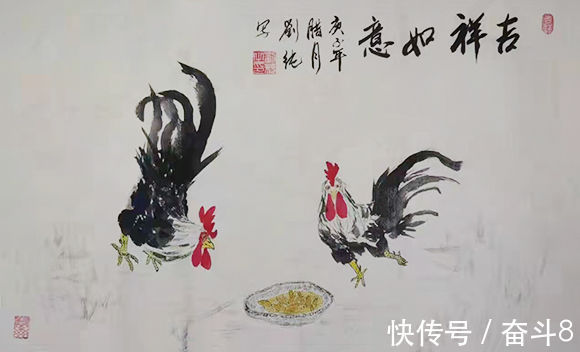 吉祥如意
庚子年
腊月
劉純
写
快传号 / 奋斗8